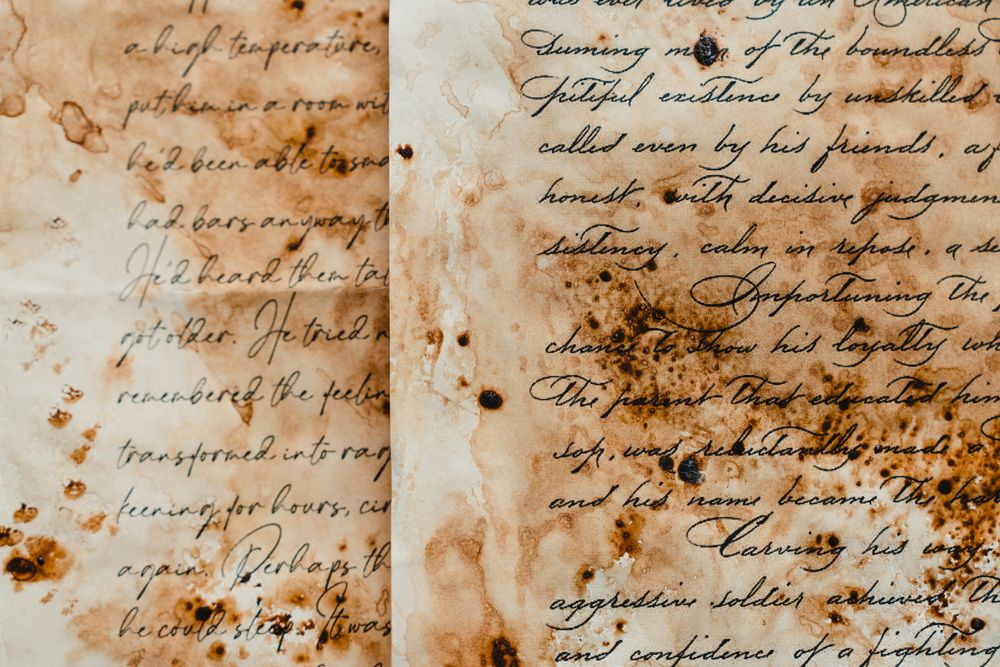 a high temperature,
put him in a room wit
he'd been able to sma
had bars anyway th
He'd heard them tal
got older. He tried n
remembered the feelin
transformed into rag
keening for hours, cir
again. Perhaps th
he could sleep. It was
was ever lived by an American
suming man of the boundless
pitiful existence by unskilled
called even by his friends, a f
honest, with decisive judgmen
sistency, calm in repose, a se
Importuning the
chance to show his loyalty wh
The parent that educated him
sop, was reluctantly made a
and his name became the ha
Carving his way,
aggressive soldier achieved th
and confidence of a fighting